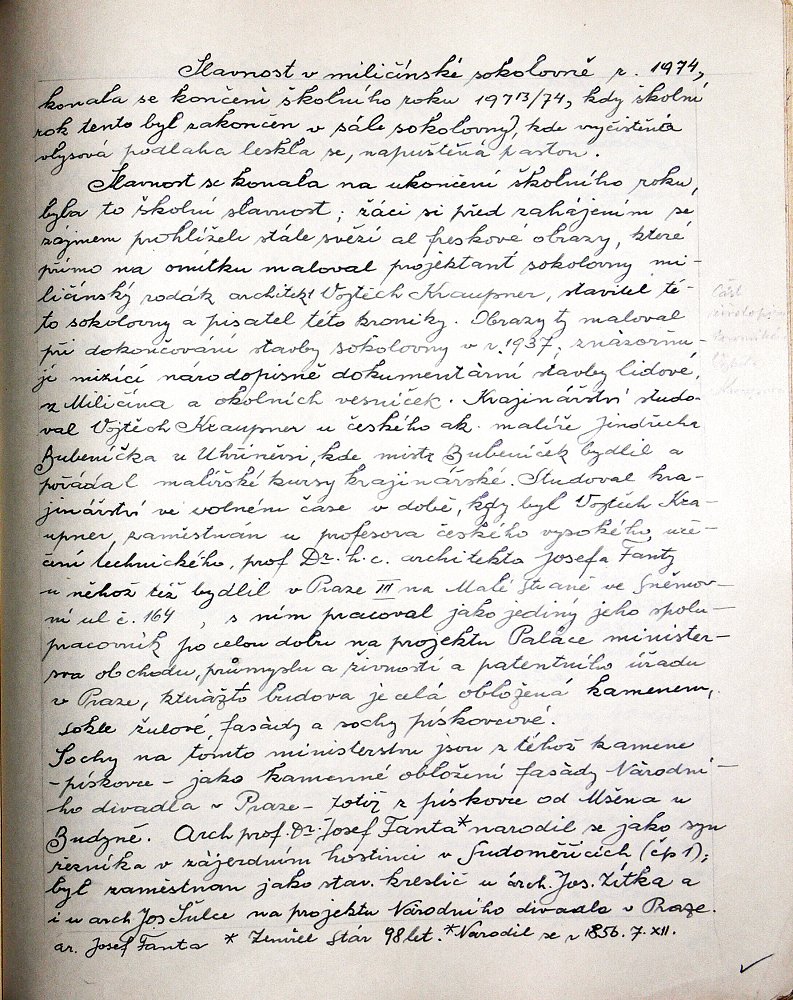 Slavnost v miličínské sokolovně r. 1974,
konala se končení školního roku 1973/74, kdy školní
rok tento byl zakončen v sále sokolovny, kde vyčištěná
vlysová podlaha leskla se, napuštěná pastou.
Slavnost se konala na ukončení školního roku,
byla to školní slavnost; žáci si před zahájením se
zájmem prohlíželi stále svěží al freskové obrazy, které
přímo na omítku maloval projektant sokolovny mi-
ličínský rodák architekt Vojtěch Kraupner, stavitel té-
to sokolovny a pisatel této kroniky. Obrazy ty maloval
při dokončování stavby sokolovny v r. 1937; znázorňu-
je mizící národopisně dokumentární stavby lidové,
z Miličína a okolních vesniček. Krajinářství studo-
val Vojtěch Kraupner u českého ak. malíře Jindřicha
Bubeníčka u Uhříněvsi, kde mistr Bubeníček bydlil a
pořádal malířské kursy krajinářské. Studoval kra-
jinářství ve volném čase v době, kdy byl Vojtěch Kra-
upner, zaměstnán u profesora českého vysokého uče-
ční technického, prof Dr. h. c. architekta Josefa Fanty
u něhož též bydlil v Praze III na Malé Straně ve Sněmov-
ní ul č. 164 , s ním pracoval jako jediný jeho spolu-
pracovník po celou dobu na projektu Paláce minister-
sva obchodu, průmyslu a živností a patentního úřadu
v Praze, kterážto budova je celá obložená kamenem,
sokle žulové, fasády a sochy pískovcové.
Sochy na tomto ministerstvu jsou z téhož kamene
-pískovce - jako kamenné obložení fasády Národní-
ho divadla v Praze - totiž z pískovce od Mšena u
Budyně. Arch prof. Dr. Josef Fanta* narodil se jako syn
řezníka v zájezdním hostinci v Sudoměřicích (čp 1);
byl zaměstnan jako stav. kreslič u arch. Jos. Zítka a
i u arch Jos Šulce na projektu Národního divadla v Praze.
ar. Josef Fanta * Zemřel stár 98 let. *Narodil se r 1856. 7. XII.
část